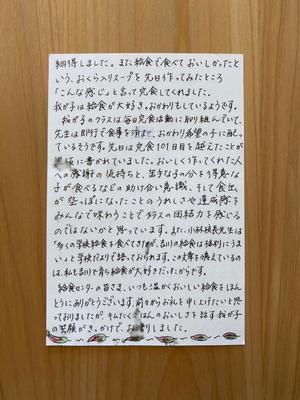 納得しました。また給食で食べておいしかったと
いう、おくら入りスープを先日作ってみたところ
「こんな感じ」と言って完食してくれました。
我が子は給食が大好き。おかわりもしているようです。
我が子のクラスは毎日完食活動に取り組んでいて、
先生は即行で食事を済ませ、おかわり希望の子に配っ
ているそうです。先日は完食101日目を越えたことが
黒板に書かれていました。おいしく作ってくれた人
への感謝の気持ちと、苦手な子の分を得意な
子が食べるなどの助け合い意識、そして食缶
が空っぽになったことのうれしさや達成感を
みんなで味わうことでクラスの団結力を感じる
のではないかと思っています。また、小林校長先生は
「多くの学校給食を食べてきたが、吉川の給食は格別にうま
い」と学校だよりで語っておられます。この文章を憶えているの
は、私も吉川で育ち給食が大好きだったからです。
給食センターの皆さま、いつも温かくおいしい給食をほん
とうにありがとうございます。前々からお礼を申し上げたいと思
っておりましたが、キムたくごはんのおいしさを話す我が子
の笑顔がきっかけで、お便りしました。